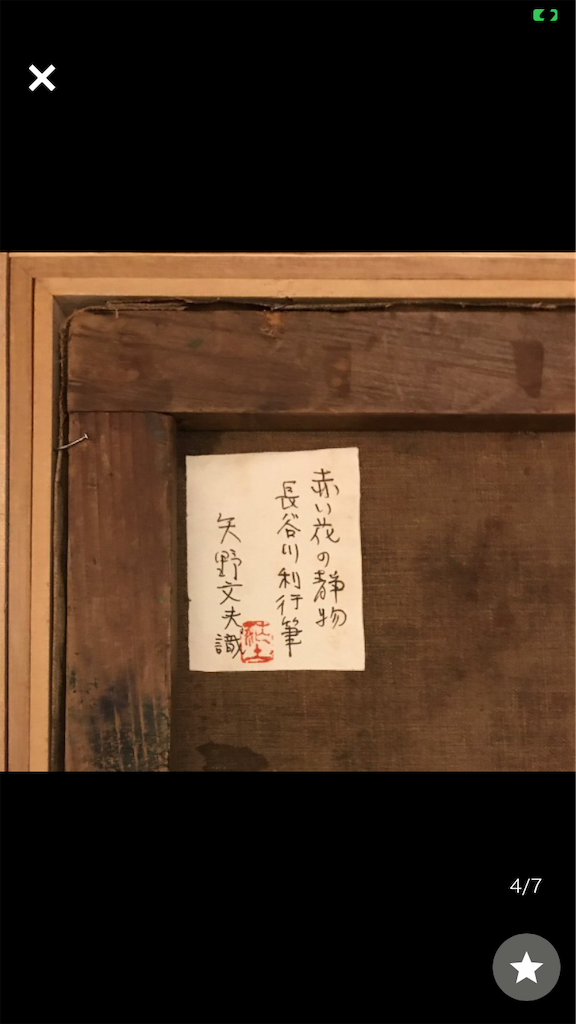 赤い花の静物
長谷川利行筆
矢野文夫識
4/7